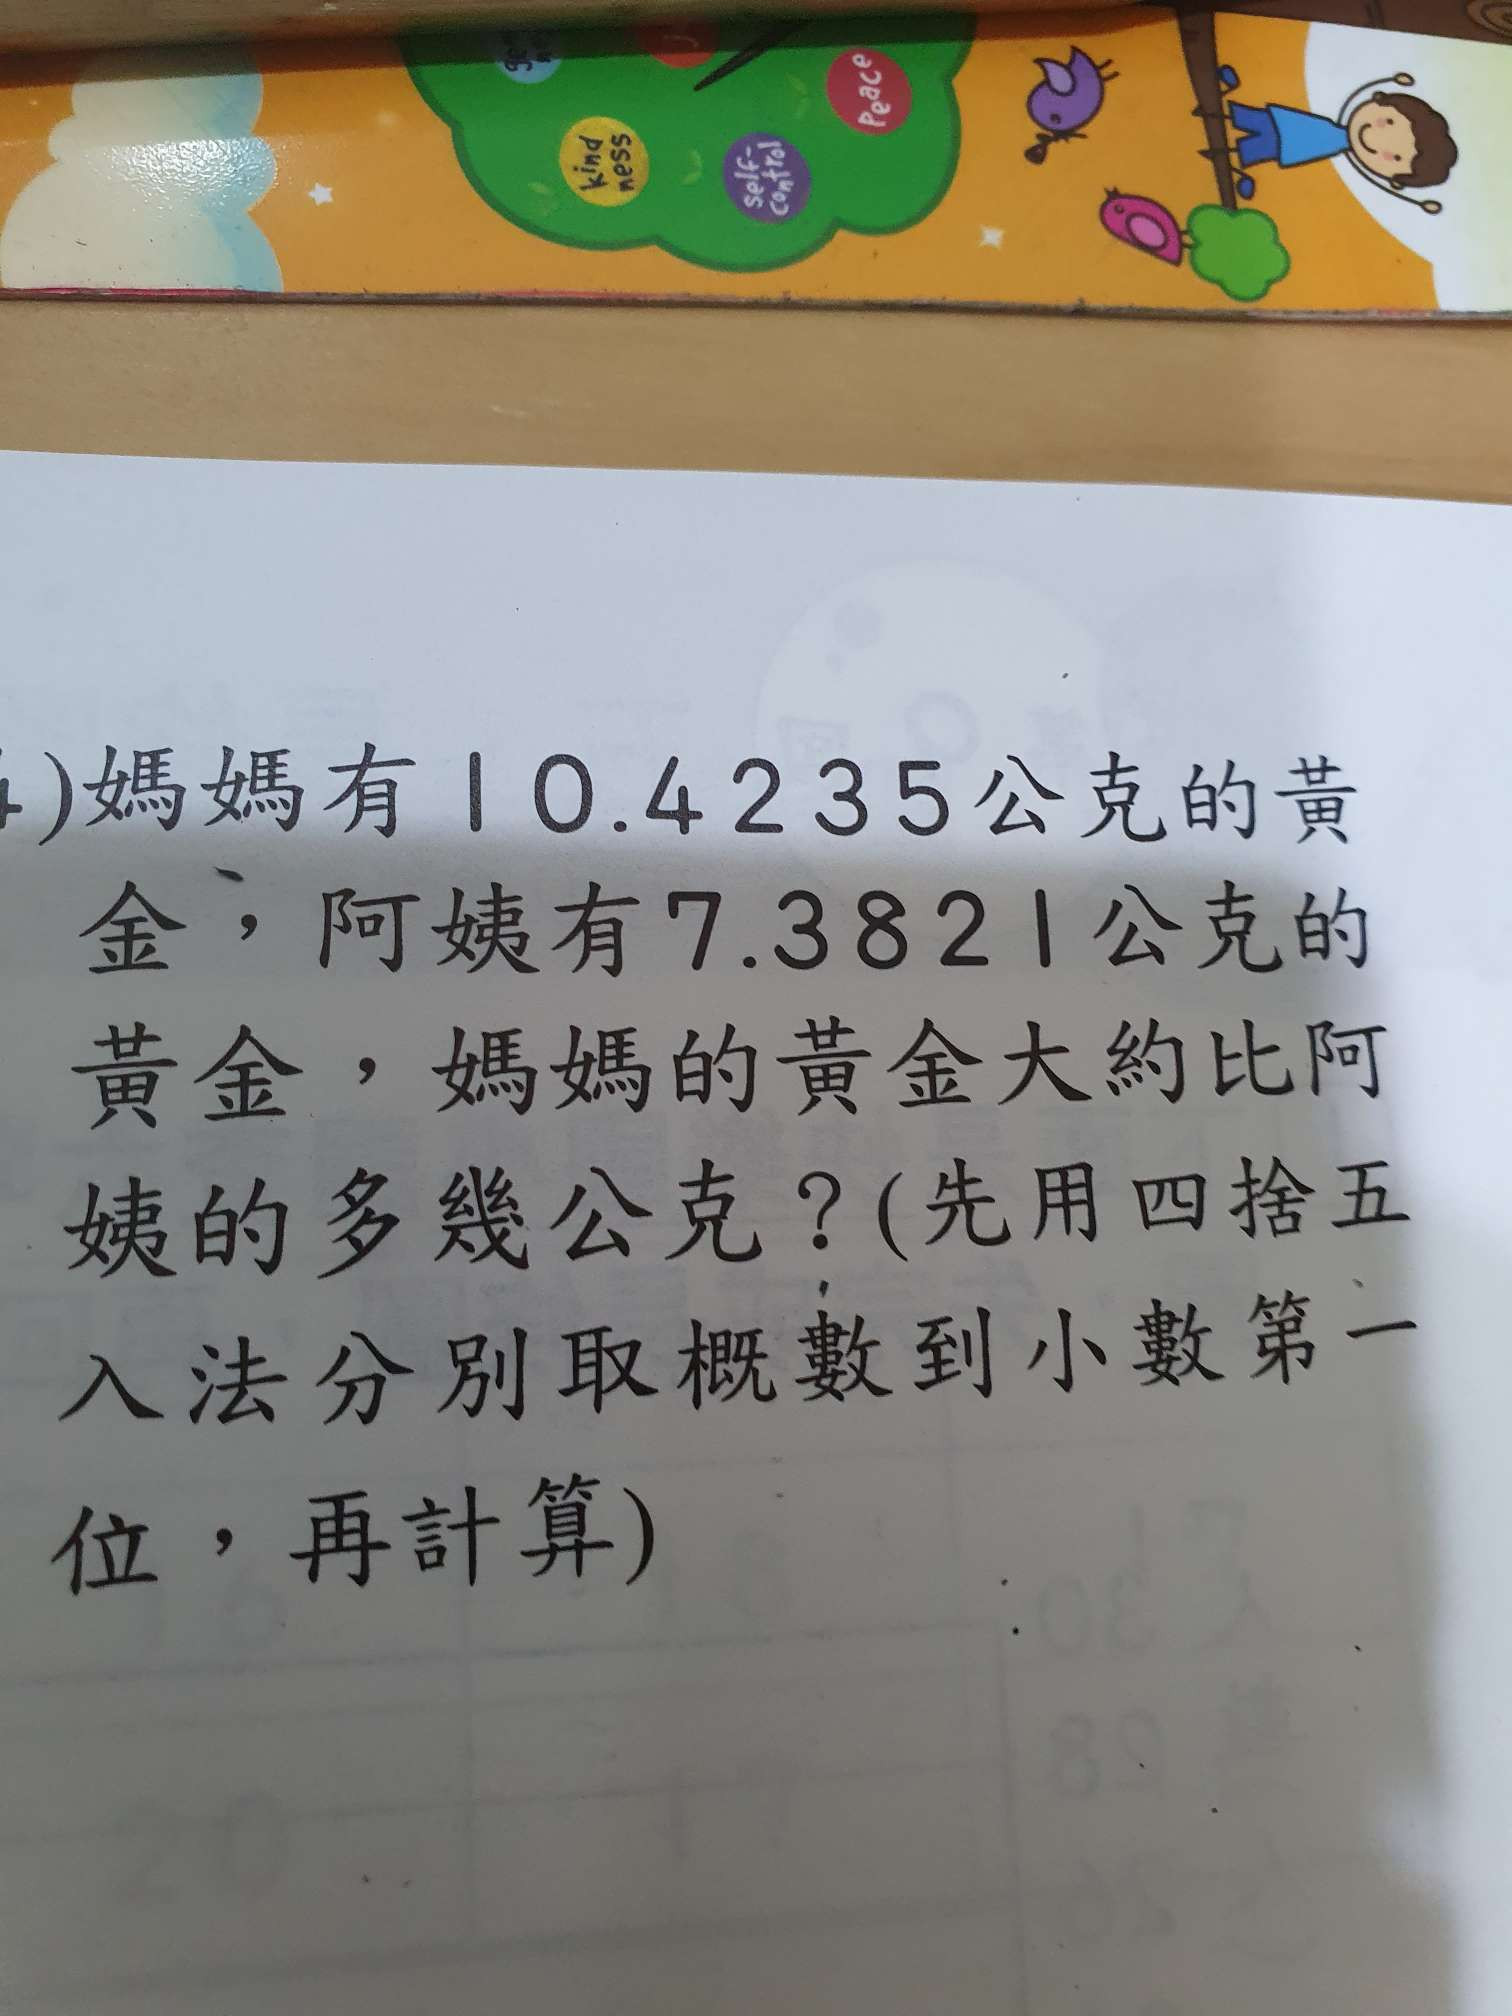 Peace
kind
ness
self-
control
4)媽媽有10.4235公克的黃
金，阿姨有7.3821公克的
黃金，媽媽的黃金大約比阿
姨的多幾公克？(先用四捨五
入法分別取概數到小數第一
位，再計算)